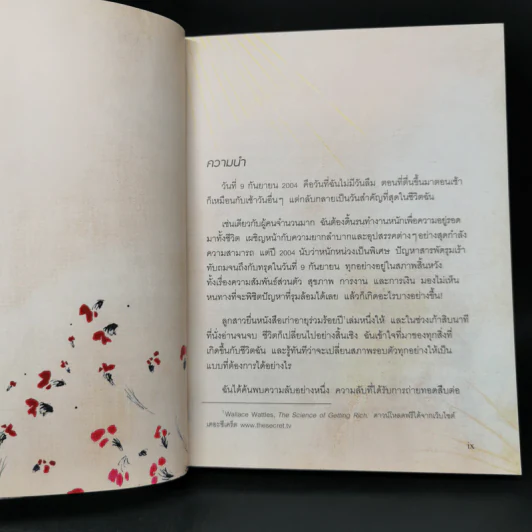 ความนำ
วันที่ 9 กันยายน 2004 คือวันที่ฉันไม่มีวันลืม ตอนที่ตื่นขึ้นมาตอนเช้า
ก็เหมือนกับเช้าวันอื่นๆ แต่กลับกลายเป็นวันสำคัญที่สุดในชีวิตฉัน
เช่นเดียวกับผู้คนจำนวนมาก ฉันต้องดิ้นรนทำงานหนักเพื่อความอยู่รอด
มาทั้งชีวิต เผชิญหน้ากับความยากลำบากและอุปสรรคต่างๆ อย่างสุดกำลัง
ความสามารถ แต่ปี 2004 นับว่าหนักหน่วงเป็นพิเศษ ปัญหาสารพัดรุมเร้า
ทับถมจนถึงกับทรุดในวันที่ 9 กันยายน ทุกอย่างอยู่ในสภาพสิ้นหวัง
ทั้งเรื่องความสัมพันธ์ส่วนตัว สุขภาพ การงาน และการเงิน มองไม่เห็น
หนทางที่จะพิชิตปัญหาที่รุมล้อมได้เลย แล้วก็เกิดอะไรบางอย่างขึ้น!
ลูกสาวยื่นหนังสือเก่าอายุร่วมร้อยปี¹เล่มหนึ่งให้ และในช่วงเก้าสิบนาที
ที่นั่งอ่านจนจบ ชีวิตก็เปลี่ยนไปอย่างสิ้นเชิง ฉันเข้าใจที่มาของทุกสิ่งที่
เกิดขึ้นกับชีวิตฉัน และรู้ทันทีว่าจะเปลี่ยนสภาพรอบตัวทุกอย่างให้เป็น
แบบที่ต้องการได้อย่างไร
ฉันได้ค้นพบความลับอย่างหนึ่ง ความลับที่ได้รับการถ่ายทอดสืบต่อ
¹Wallace Wattles, The Science of Getting Rich. ดาวน์โหลดฟรีได้จากเว็บไซต์
เดอะซีเคร็ต www.thesecret.tv
ix